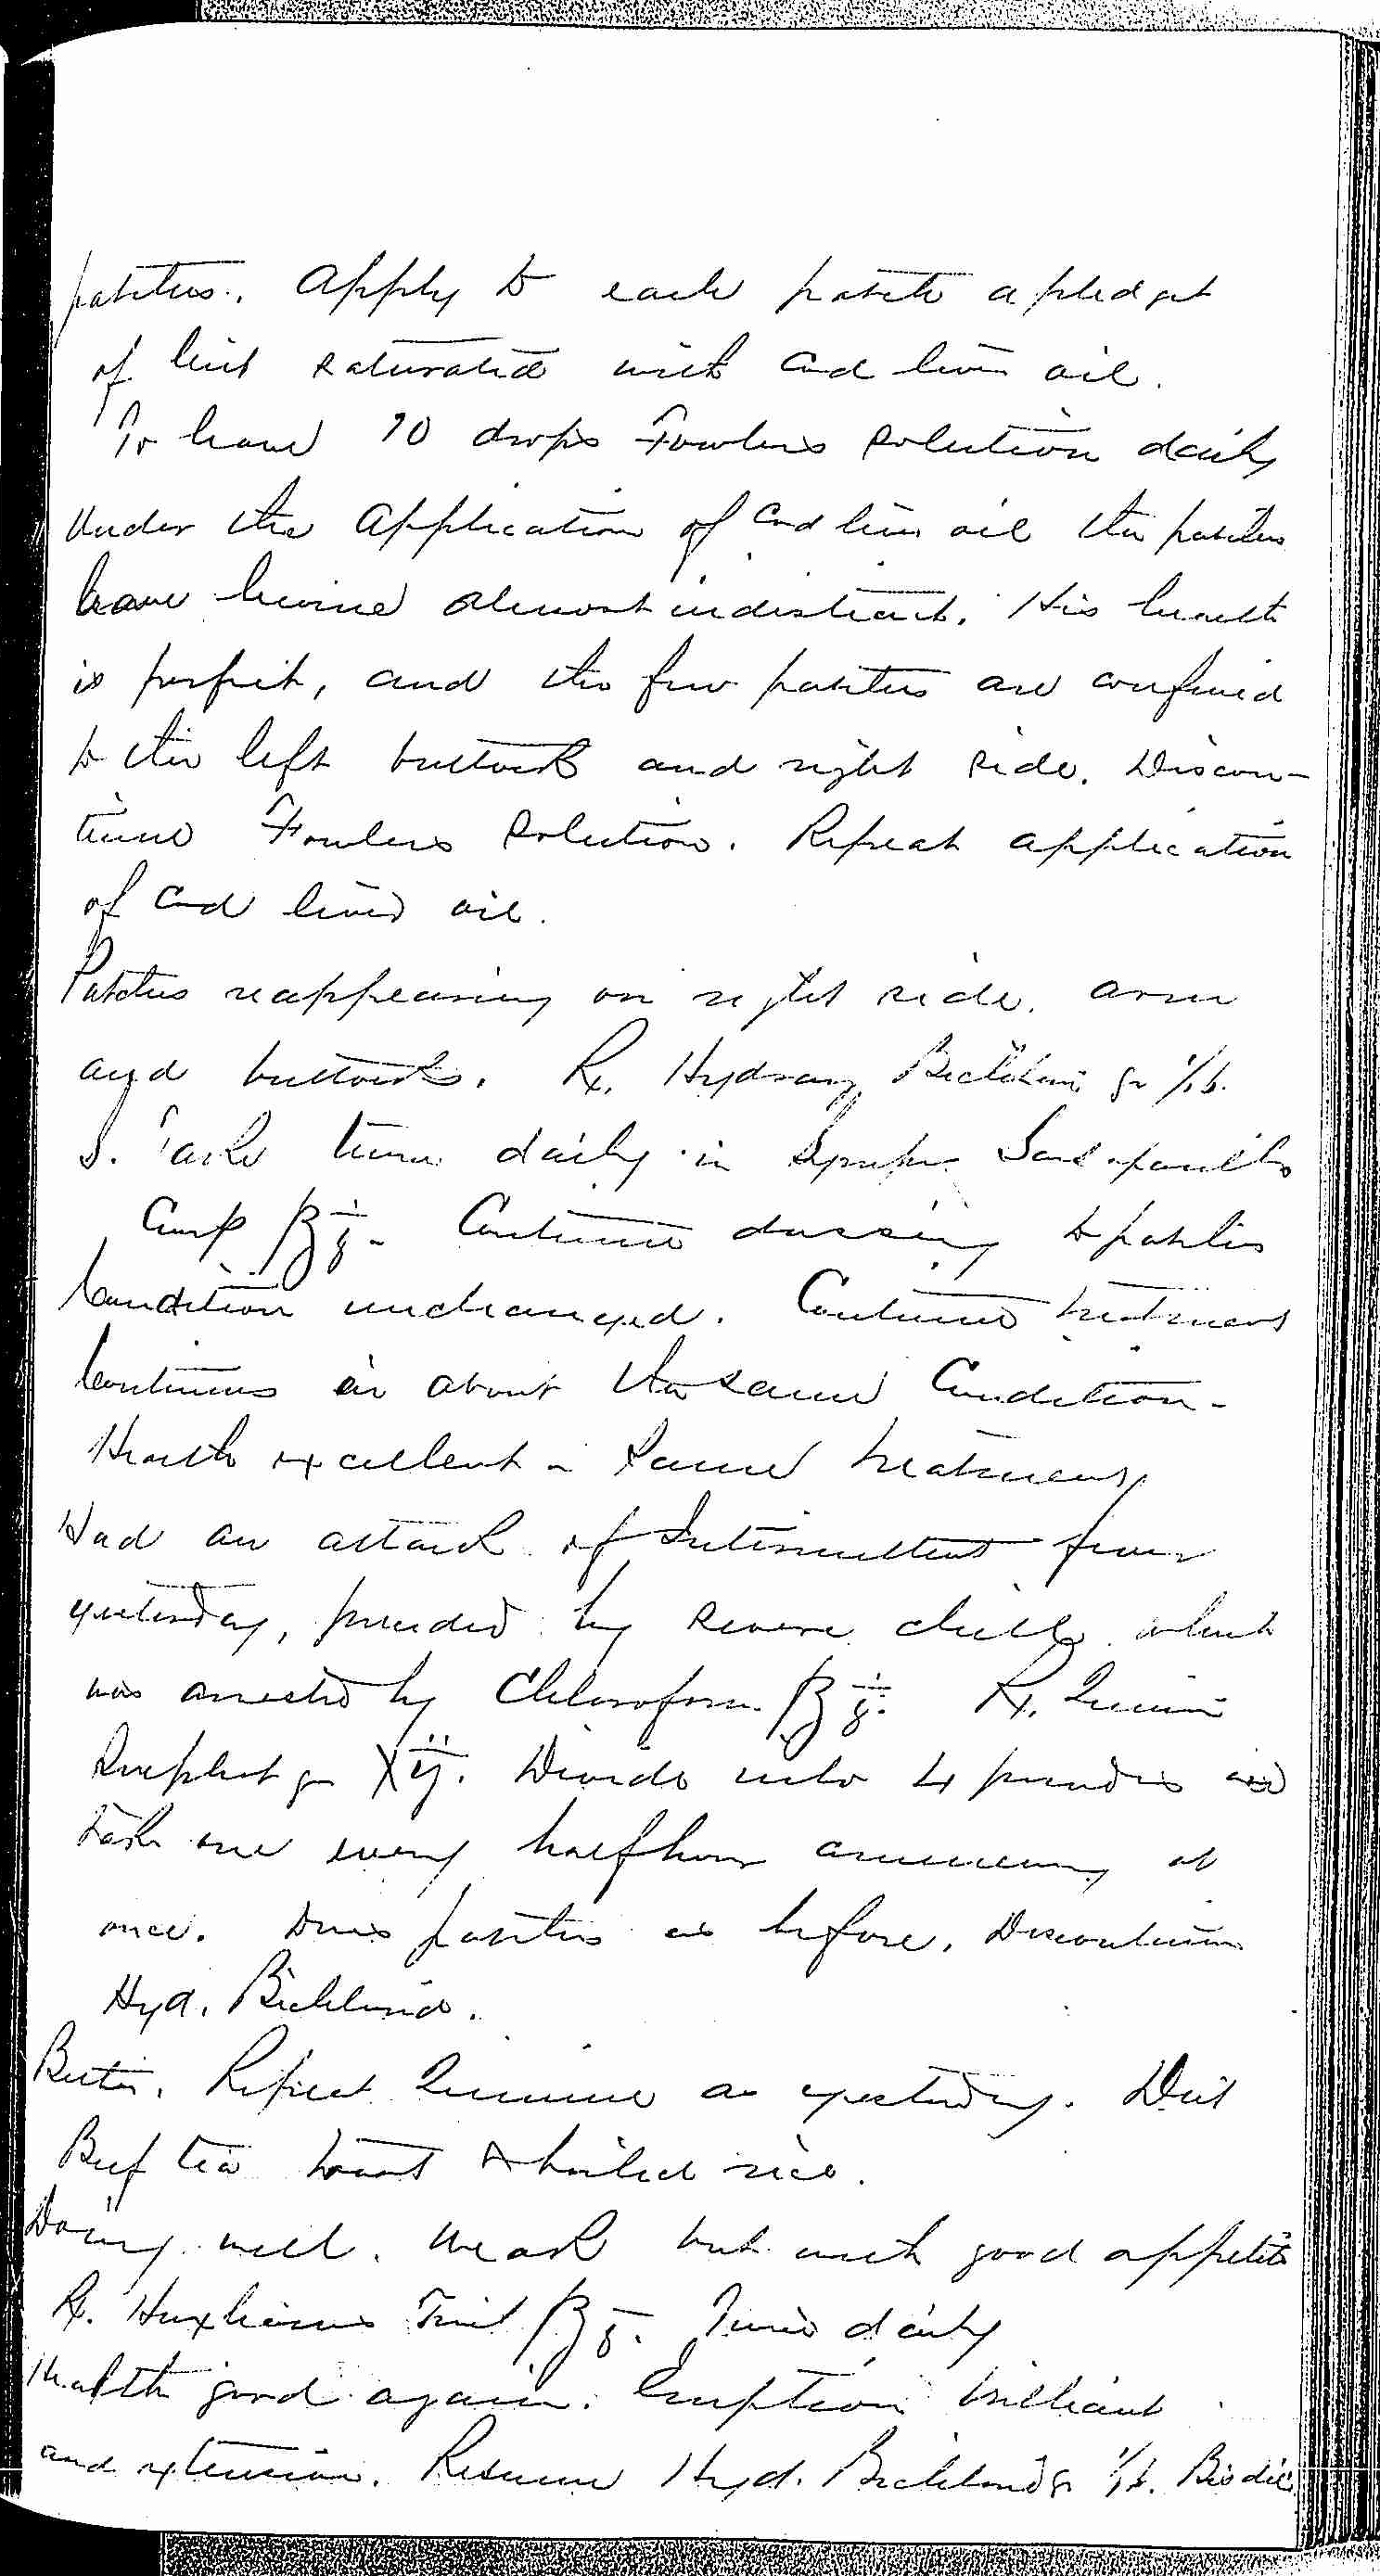 patches. Apply to each patch a pledget
of lint saturated with Cod liver oil.
To have 10 drops Fowlers Solution daily
Under the Application of Cod liver oil the patches
have become almost indistinct. His health
is perfect, and the few patches are confined
to the left buttock and right side. Discon-
tinue Fowlers Solution. Repeat application
of Cod liver oil.
Patches reappearing on right side, arm
and buttocks. Rx. Hydrarg Bichlorid gr 1/16.
S. Take daily in Syrup Sarsaparilla
Comp ʒj - Continue dressing to patches
Condition unchanged. Continue treatment
Continues in about the same Condition -
Health excellent - Same treatment
Had an attack of Intermittent fever
yesterday, preceded by severe chill which
was arrested by Chloroform Rx. Quinin
Sulph gr XIJ. Divide into 4 powders and
take one every half hour commencing at
once. Dress patches as before. Discontinue
Hyd. Bichlorid.
Better. Repeat Quinine as yesterday. Diet
Beef tea toast & boiled rice.
Doing well. Weak but with good appetite
Rx. Huxhams Tinct ʒj. Twice daily
Health good again. Eruption brilliant
and extensive. Resume Hyd. Bichlorid gr 1/16. Bis die